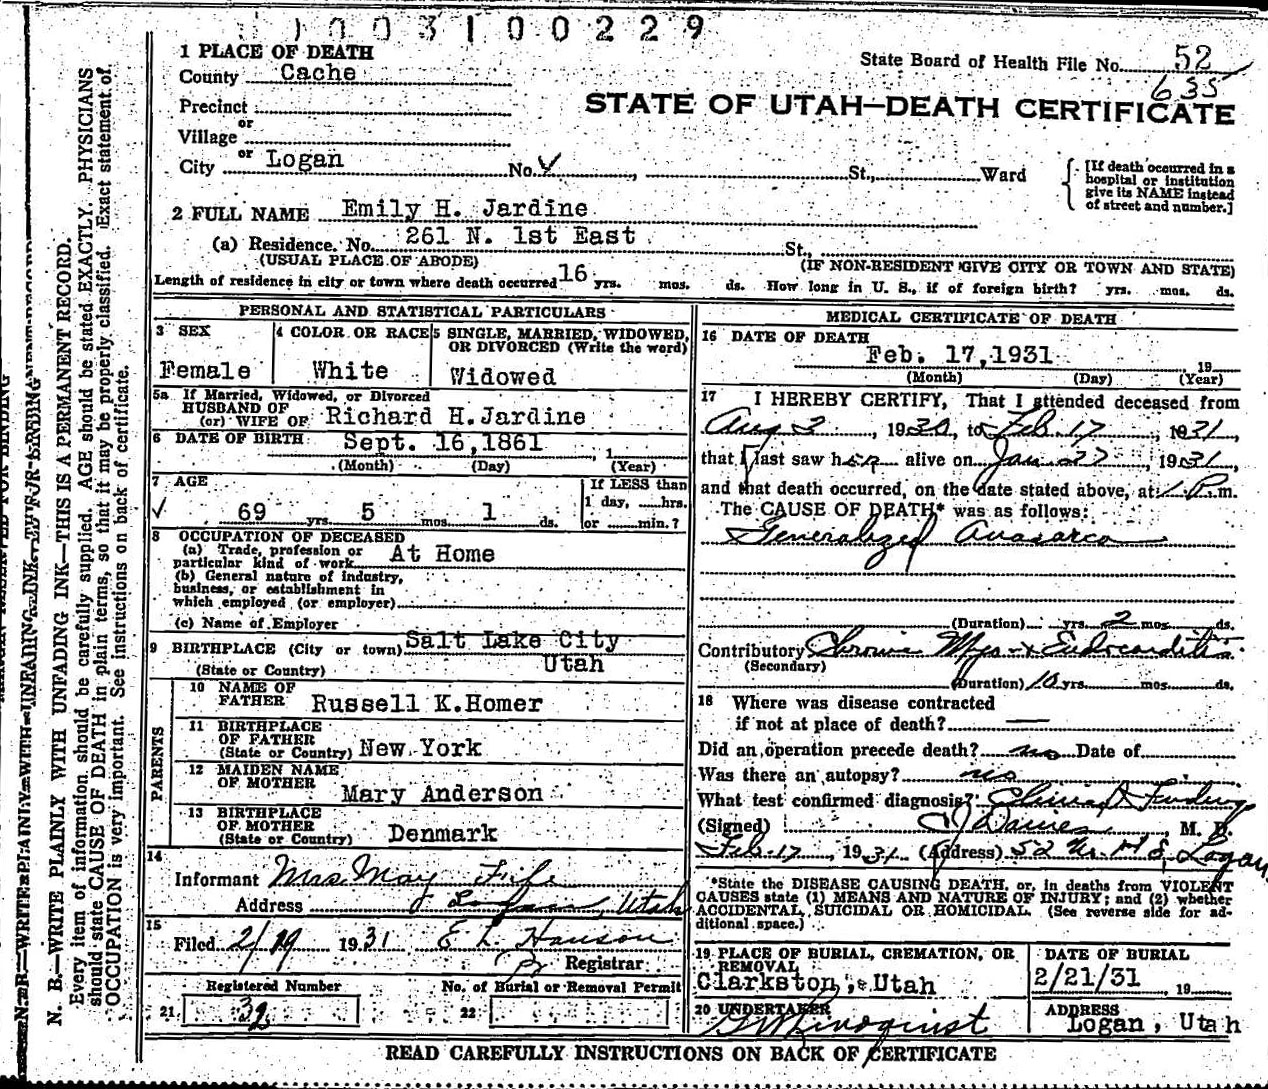 1 0 0 3 1 0 0 2 2 9
1 PLACE OF DEATH
County Cache
State Board of Health File No. 52
635
Precinct
STATE OF UTAH—DEATH CERTIFICATE
or
Village
or
City Logan No. St., Ward
[If death occurred in a
hospital or institution
give its NAME instead
of street and number.]
2 FULL NAME Emily H. Jardine
(a) Residence. No. 261 N. 1st East St.,
(USUAL PLACE OF ABODE) (IF NON-RESIDENT GIVE CITY OR TOWN AND STATE)
Length of residence in city or town where death occurred 16 yrs. mos. ds. How long in U. S., if of foreign birth? yrs. mos. ds.
PERSONAL AND STATISTICAL PARTICULARS
3 SEX
Female
4 COLOR OR RACE
White
5 SINGLE, MARRIED, WIDOWED,
OR DIVORCED (Write the word)
Widowed
5a If Married, Widowed, or Divorced
HUSBAND OF
(or) WIFE OF Richard H.Jardine
6 DATE OF BIRTH Sept. 16,1861 1
(Month) (Day) (Year)
7 AGE
69 yrs 5 mos 1 ds.
If LESS than
1 day, hrs.
or min.?
8 OCCUPATION OF DECEASED
(a) Trade, profession or
particular kind of work At Home
(b) General nature of industry,
business, or establishment in
which employed (or employer)
(c) Name of Employer
9 BIRTHPLACE (City or town) Salt Lake City
(State or Country) Utah
PARENTS
10 NAME OF
FATHER Russell K.Homer
11 BIRTHPLACE
OF FATHER
(State or Country) New York
12 MAIDEN NAME
OF MOTHER Mary Anderson
13 BIRTHPLACE
OF MOTHER
(State or Country) Denmark
14
Informant Mrs. May Fife
Address Logan, Utah
15
Filed 2/19 1931 E L Hanson
Registrar
Registered Number
21 32
No. of Burial or Removal Permit
22
MEDICAL CERTIFICATE OF DEATH
16 DATE OF DEATH
Feb. 17,1931 19
(Month) (Day) (Year)
17 I HEREBY CERTIFY, That I attended deceased from
Aug 3, 1930, to Feb. 17, 1931,
that I last saw her alive on Jan 27, 1931,
and that death occurred, on the date stated above, at 1 P.m.
The CAUSE OF DEATH* was as follows:
Generalized Anasarca
(Duration) yrs. 2 mos. ds.
Contributory Chronic Myo- + Endocarditis
(Secondary)
(Duration) 10 yrs. mos. ds.
18 Where was disease contracted
if not at place of death? —
Did an operation precede death? no Date of
Was there an autopsy? no
What test confirmed diagnosis? Clinical
(Signed) Daines, M. D.
Feb. 17, 1931 (Address) 52 Logan
*State the DISEASE CAUSING DEATH, or, in deaths from VIOLENT
CAUSES state (1) MEANS AND NATURE OF INJURY; and (2) whether
ACCIDENTAL, SUICIDAL OR HOMICIDAL. (See reverse side for ad-
ditional space.)
19 PLACE OF BURIAL, CREMATION, OR
REMOVAL
Clarkston, Utah
DATE OF BURIAL
2/21/31 19
20 UNDERTAKER
Lindquist
ADDRESS
Logan, Utah
READ CAREFULLY INSTRUCTIONS ON BACK OF CERTIFICATE
N. B.—WRITE PLAINLY WITH UNFADING INK—THIS IS A PERMANENT RECORD.
Every item of information should be carefully supplied. AGE should be stated EXACTLY. PHYSICIANS
should state CAUSE OF DEATH in plain terms, so that it may be properly classified. Exact statement of
OCCUPATION is very important. See instructions on back of certificate.